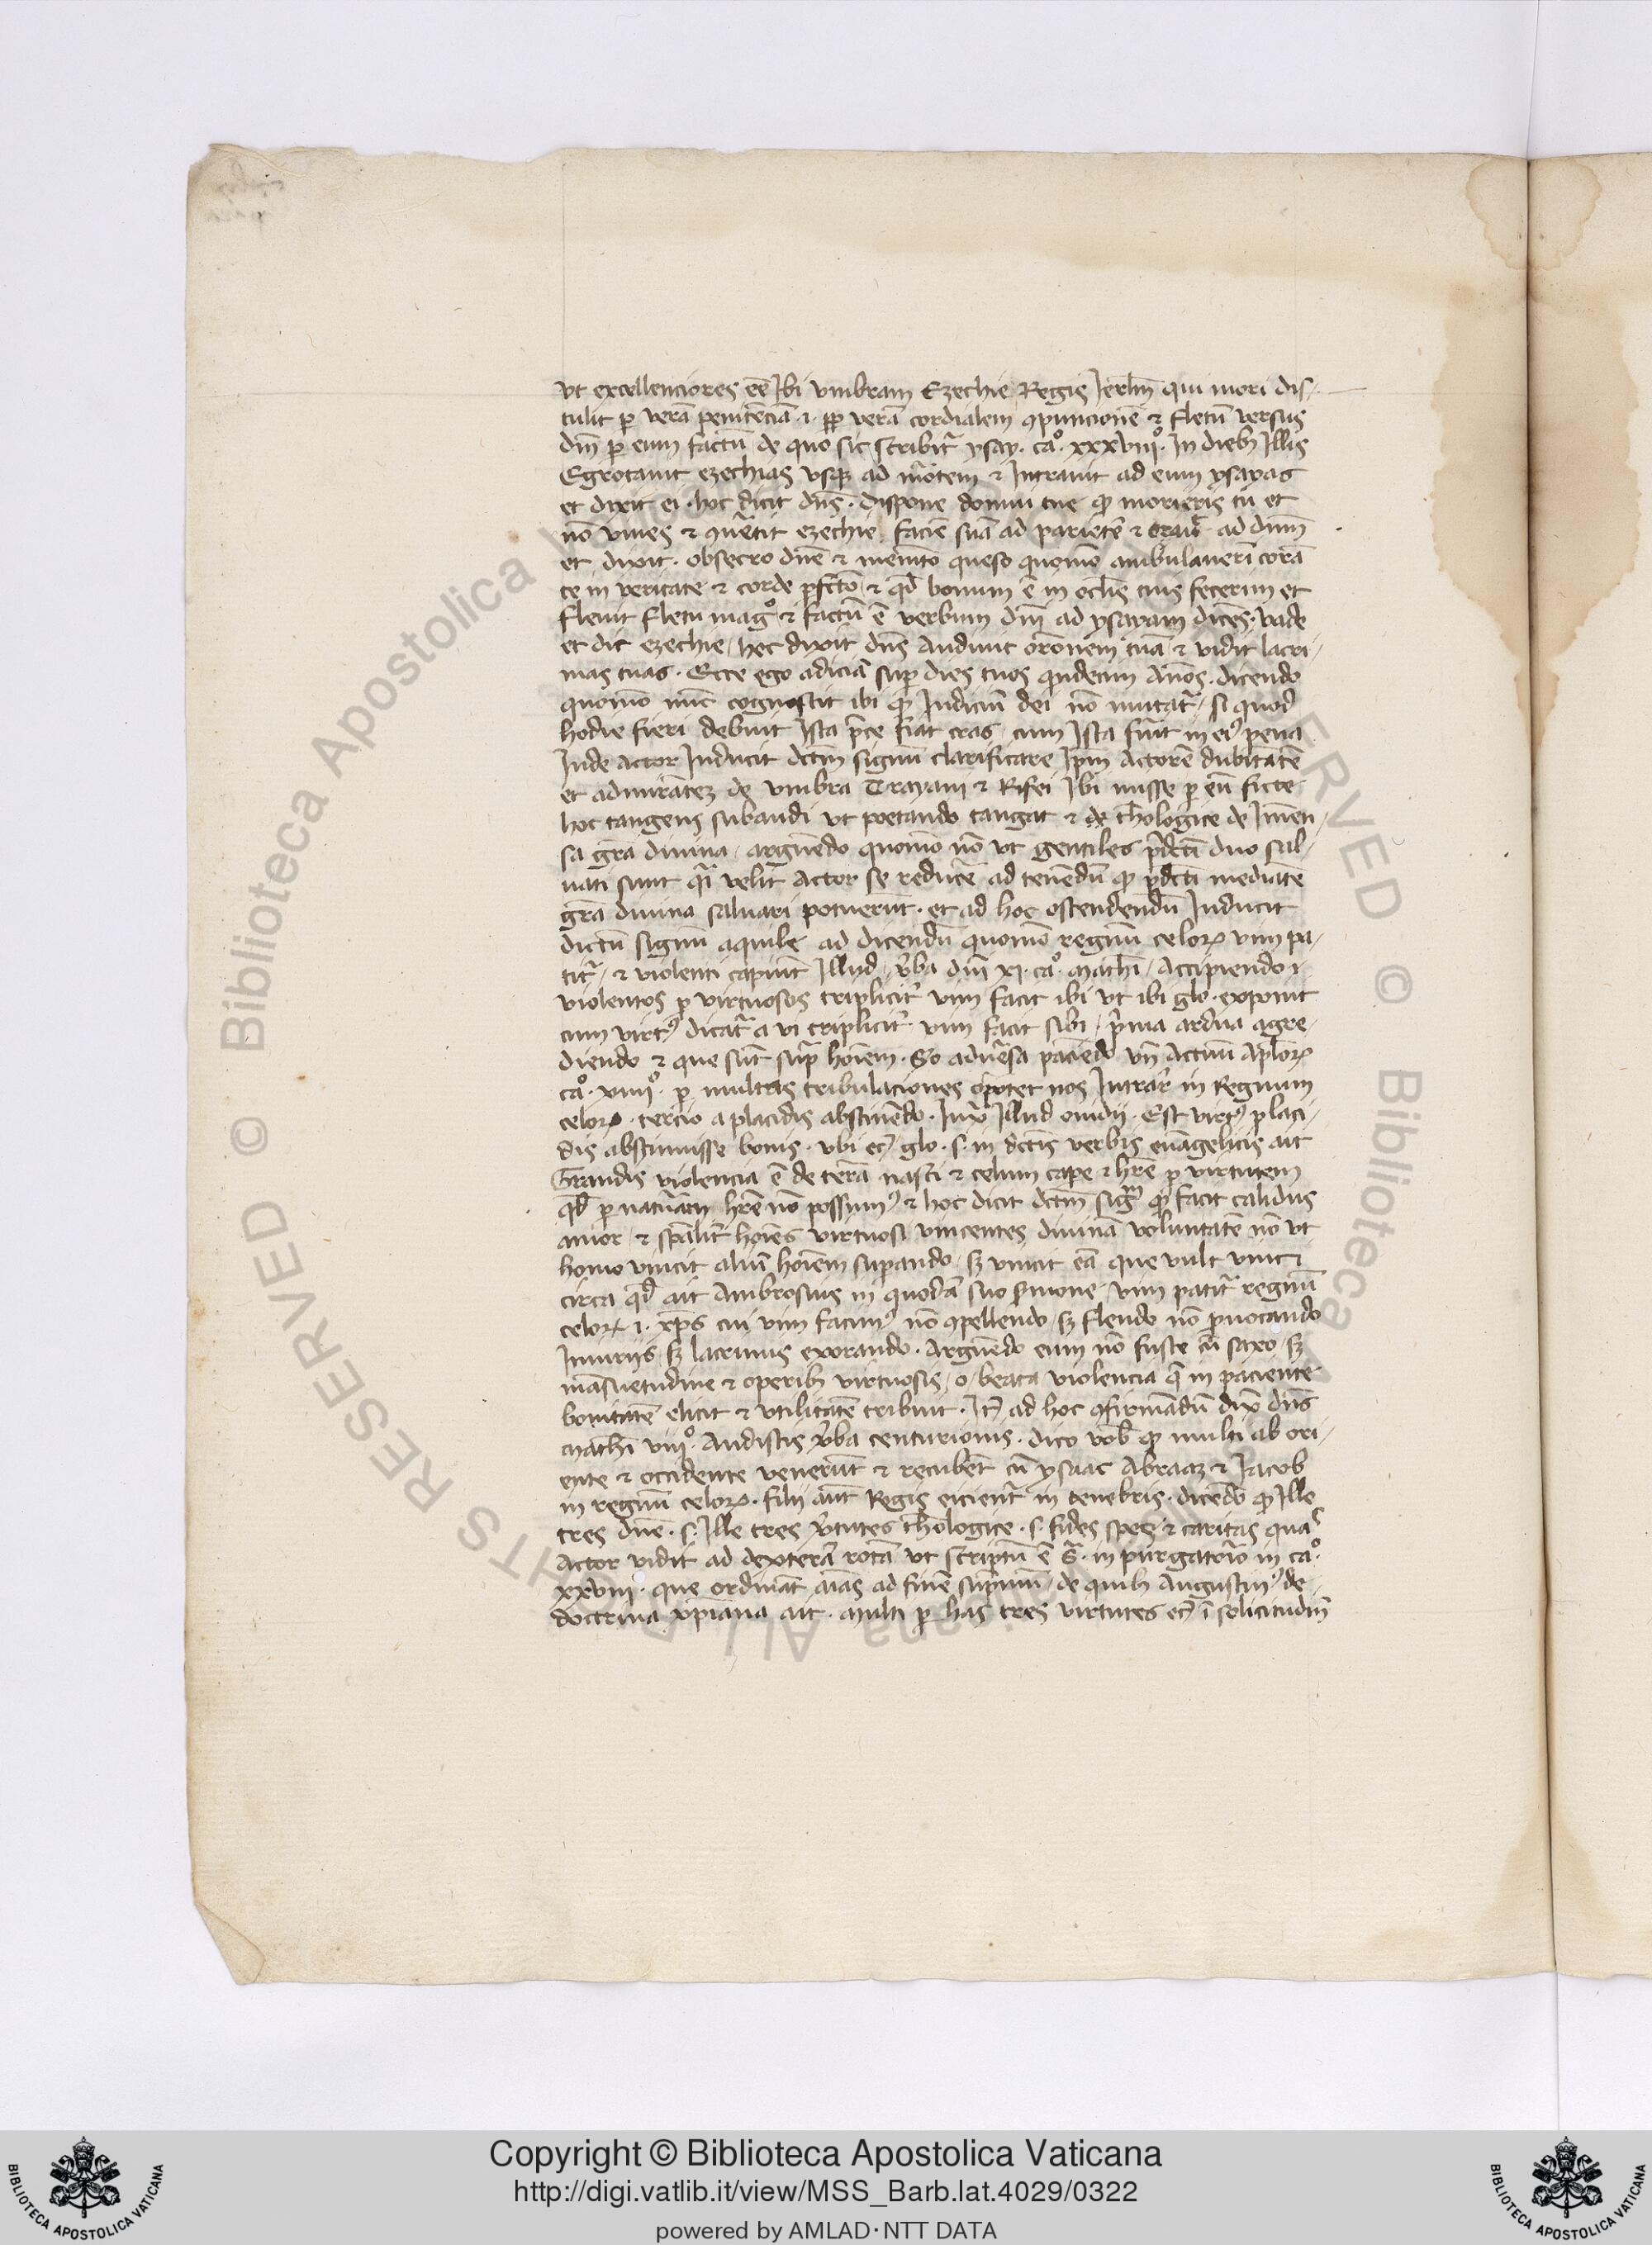 vt excellenciores eē Ibi vmbram Ezechie Regis Ierłm qui mori dis-
tulit ꝑ verā penitēciā .i. ꝓꝑ verā cordialem ꝯpuncionē ⁊ fletū versus
dm̄ ꝑ eum factū de quo sic scribit᷑ ysay. ca°. xxxviii°. In dieb; Illis
Egrotauit ezechias vsq; ad mōtem ⁊ Intrauit ad eum ysayas
et dixit ei. hoc dicit dn̄s. dispone domui tue ꝙ morieris tu et
nō viues ⁊ ꝯuētit ezechie faciē suā ad parietē ⁊ orauit ad dnm̄
et dixit. obsecro dn̄e ⁊ memēto queso quomō ambulauerī corā
te in veritate ⁊ corde ꝑfc̄to ⁊ qđ bonum ē in oc̄lis tuis fecerim et
fleuit fletu mag° ⁊ factū ē verbum dn̄i ad ysayam dicēs. vade
et dic ezechie / hec dixit dn̄s Audiuit orōnem tuā ⁊ vidit lacri-
mas tuas. Ecce ego adiciā suꝑ dies tuos qndecim Annos. dicendo
quomō nūc cognoscit ibi ꝙ Iudiciū dei nō mutat᷑ / si quod
hodie fieri debuit Ista p̄ce fiat cras / cum Ista fūit in ei9 pena
Inde actor Inducit dc̄tm signū clarificare Ip̄m Actorē dubitātē
et admirātez de vmbra Trayani ⁊ Rifei Ibi misse ꝑ eū ficte
hoc tangens subaudi vt poetando tangat ⁊ de theologice de Imēn-
sa gr̄a diuina / arguēdo quomō nō vt gentiles p̄dc̄ti duo sal-
uati sunt q̄i velit Actor se reducē ad tenēdū ꝙ p̄dc̄ti mediātē
gr̄a diuina saluari potuerūt. et ad hoc ostendendū Inducit
dictū signū aquile ad dicendū quomō regnū celoꝝ vim pa-
tit᷑ / ⁊ violenti rapiūt Illud / v̄ba dn̄i xi. ca°. mathi / Accipiendo .i.
violentos ꝑ virtuosos tripliciť vim facit ibi vt ibi glo. exponit
cum virt9 dicat᷑ a vi tripliciť vim facit sibi / p̄ma ardua agre-
diendo ⁊ que sūt sup̄ hoīem. So aduersa paciēdo vn̄ Actuū Aplōꝝ
ca°. xiiii°. ꝑ multas tribulaciones oportet nos Intrare in Regnum
celoꝝ. tercio a placidis abstinēdo. Iux̄ Illud ouidij. Est virt9 placi-
dis abstinuisse bonis. vbi et̄ glo. s. in dc̄tis verbis euāgelicis ait
Grandis violencia ē de terra nasci ⁊ celum capere ⁊ hr̄e ꝑ virtutem
qđ ꝑ natuām hr̄e nō possum9 ⁊ hoc dicit dc̄tm sigm̄ ꝙ facit calidus
amor ⁊ spāliť hoīes virtuosi vincentes diuinā voluntatē nō vt
homo vincit aliū hoīem suꝑando / s; vincit eā que vult vinci
circa qđ ait Ambrosius in quodā suo sermone / vim patit᷑ regnū
celoꝝ .i. xp̄s cui vim facim9 nō ꝯpellendo s; flendo nō ꝓuocando
Iniurijs s; lacrimis exorando. Arguēdo eum nō fuste cū saxo / s;
māsuetudine ⁊ operib; virtuosis / o / beata violencia q̄ in paciente
bonitatē elicit ⁊ vtilitatē tribuit. It̄ ad hoc ꝯfirmādū dix̄ dn̄s
mathi viii°. Audistis v̄ba centurionis. dico vob̄ ꝙ multi ab ori-
ente ⁊ occidente venerūt ⁊ recubēt cū ysaac Abraaz ⁊ Iacob
in regnū celoꝝ. filij aūt Regis eicient᷑ in tenebris. dicēdo ꝙ Ille
tres dn̄e. s. Ille tres v̄tutes theologice. s. fides spes ⁊ caritas quas
Actor vidit ad dexterā rotā vt scriptū ē s̄. in purgatrīo in ca°.
xxviiii. que ordināt aīas ad finē sup̄mū / de quib; Augustin9 de
doctrina xp̄iana ait. multi ꝑ has tres virtutes et̄ ī solicitudīe
Copyright © Biblioteca Apostolica Vaticana
http://digi.vatlib.it/view/MSS_Barb.lat.4029/0322
powered by AMLAD·NTT DATA